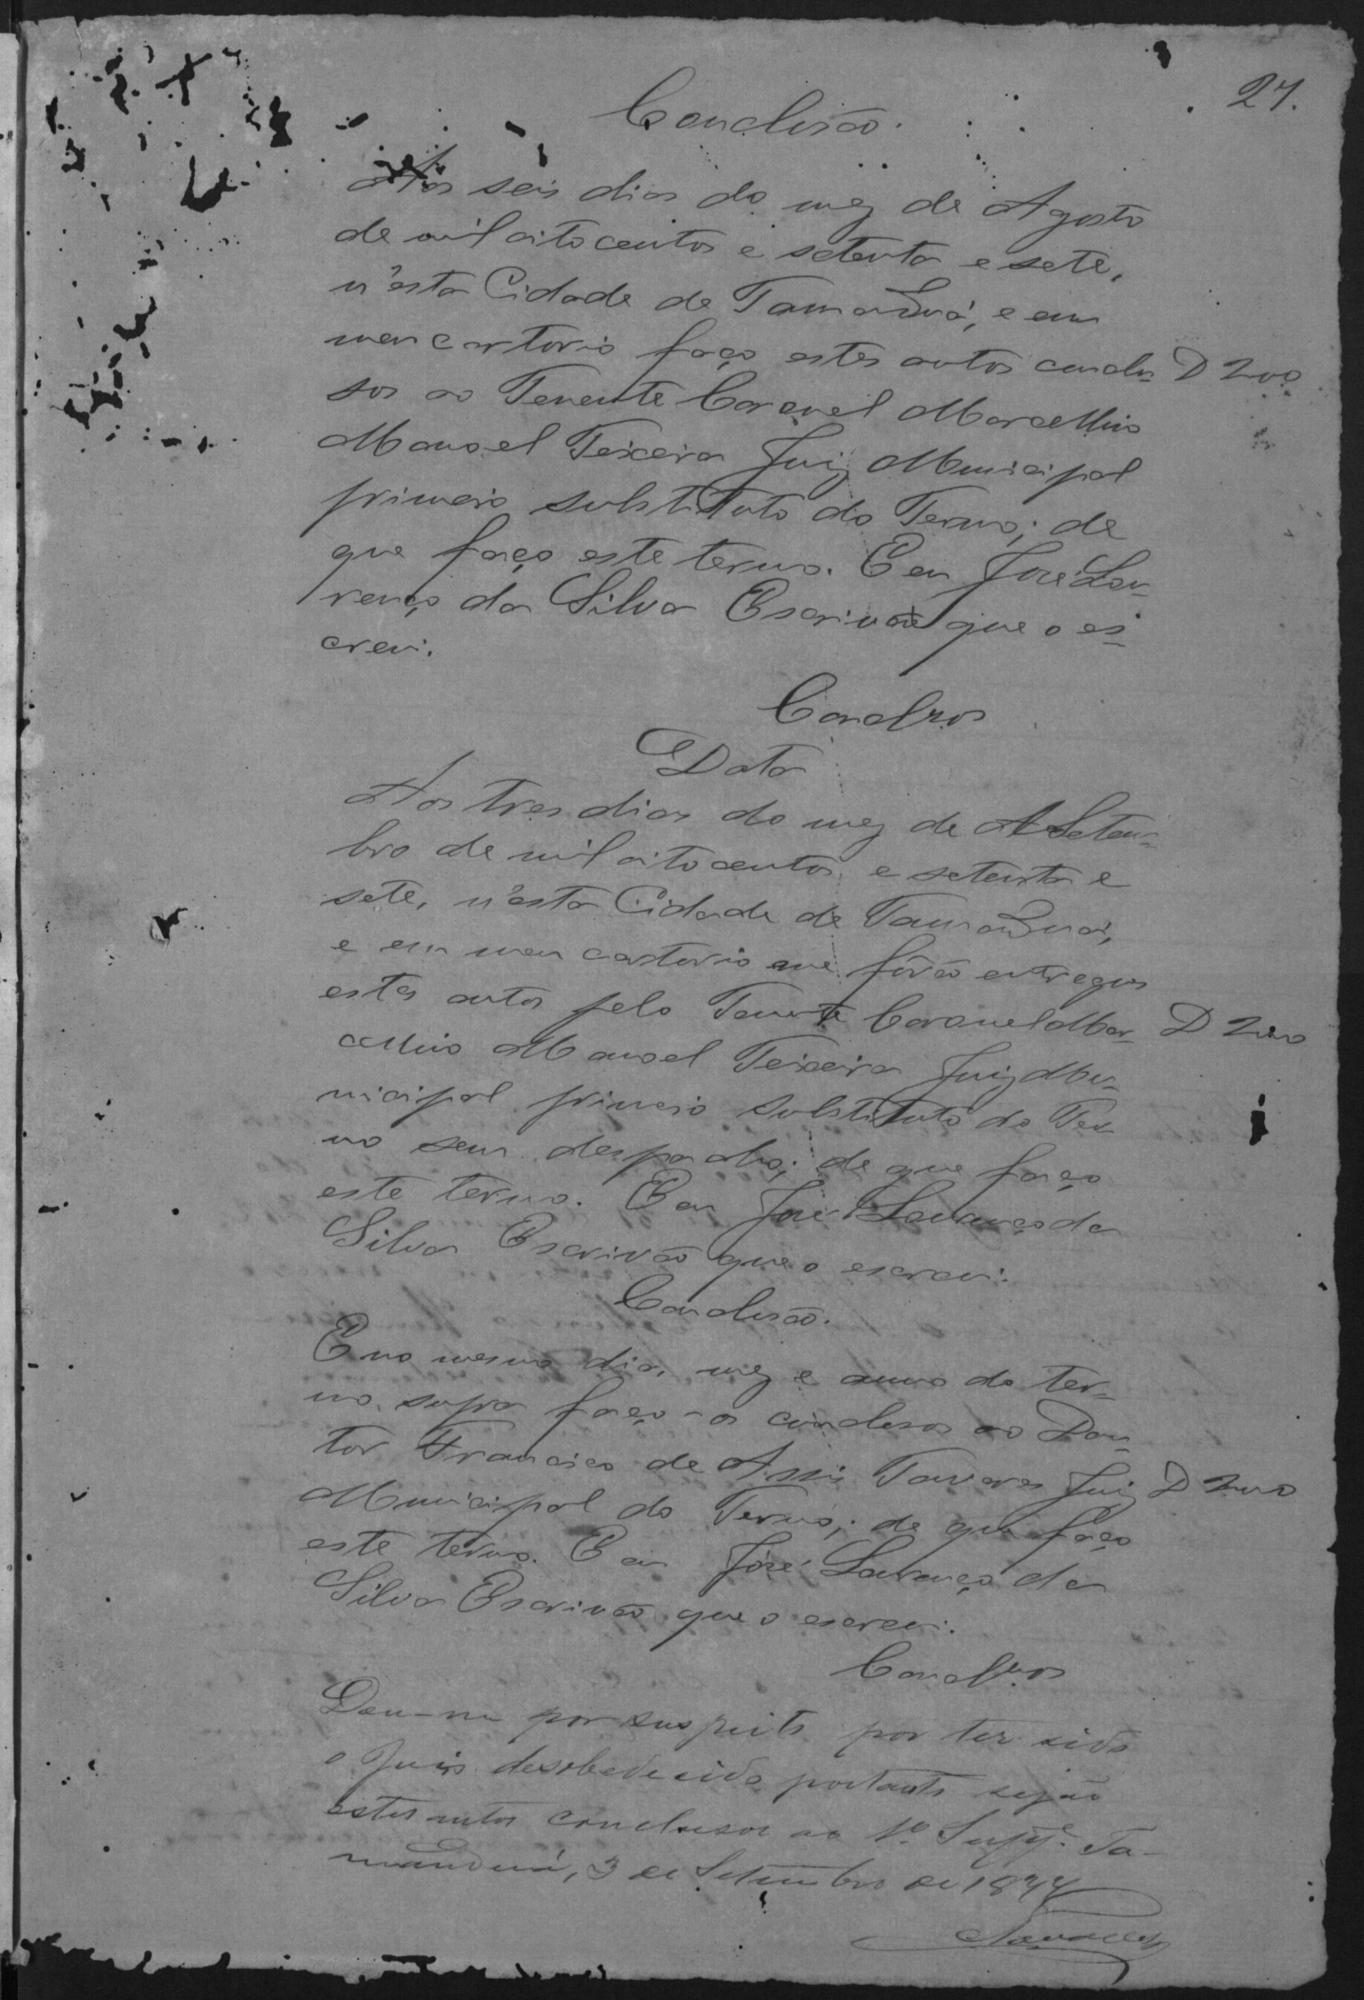 27.
Conclusão.
Aos seis dias do mez de Agosto
de mil oito centos e setenta e sete,
n'esta Cidade de Tamanduá, e em
meu cartorio faço estes autos conclu- D 200
sos ao Tenente Coronel Marcellino
Manoel Teixeira Juiz Municipal
primeiro substituto do Termo; de
que faço este termo. E eu José Lou-
renço da Silva Escrivão que o es-
crevi.
Conclzos
Data
Aos tres dias do mez de Setem-
bro de mil oito centos e setenta e
sete, n'esta Cidade de Tamanduá,
e em meu cartorio me fôrão entregues
estes autos pelo Tenente Coronel Mar- D 200
cellino Manoel Teixeira Juiz Mu-
nicipal primeiro substituto do Ter-
mo sem despacho; de que faço
este termo. E eu José Lourenço da
Silva Escrivão que o escrevi.
Conclusão.
E no mesmo dia, mez e anno do ter-
mo supra faço-os conclusos ao Dou-
tor Francisco de Assis Tavares Juiz D 200
Municipal do Termo; de que faço
este termo. E eu José Lourenço da
Silva Escrivão que o escrevi.
Conclzos
Dou-me por suspeito por ter sido
o Juiz desobedecido portanto sejão
estes autos conclusos ao 1º Supp.e Ta-
manduá, 3 de Setembro de 1877
Tavares